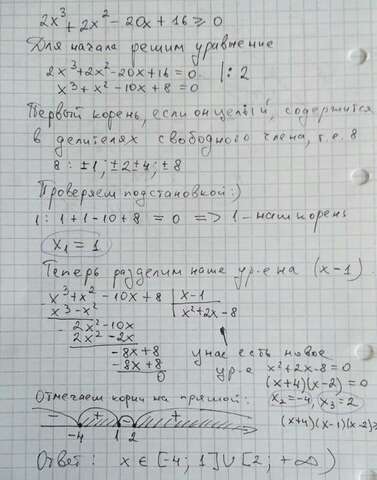 2x³ + 2x² - 20x + 16 ≥ 0
Для начала решим уравнение
2x³+2x²-20x+16=0 |: 2
x³ + x² - 10x + 8 = 0
Первый корень, если он целый, содержится
в делителях свободного члена, т.е. 8
8 : ±1; ±2 ±4; ±8
Проверяем подстановкой:)
1: 1+1-10+8 = 0 => 1 - наш корень
x₁ = 1
Теперь разделим наше ур-е на (x-1)
x³+x² -10x+8 | x-1
x³-x² x²+2x-8
- 2x²-10x
2x² -2x
- -8x+8
-8x+8
0
у нас есть новое
ур-е x²+2x-8=0
(x+4)(x-2)=0
x₂=-4, x₃=2
(x+4)(x-1)(x-2)≥
Отмечаем корни на прямой:
- + - +
-4 1 2
Ответ: x ∈ [-4; 1] ∪ [2; +∞)